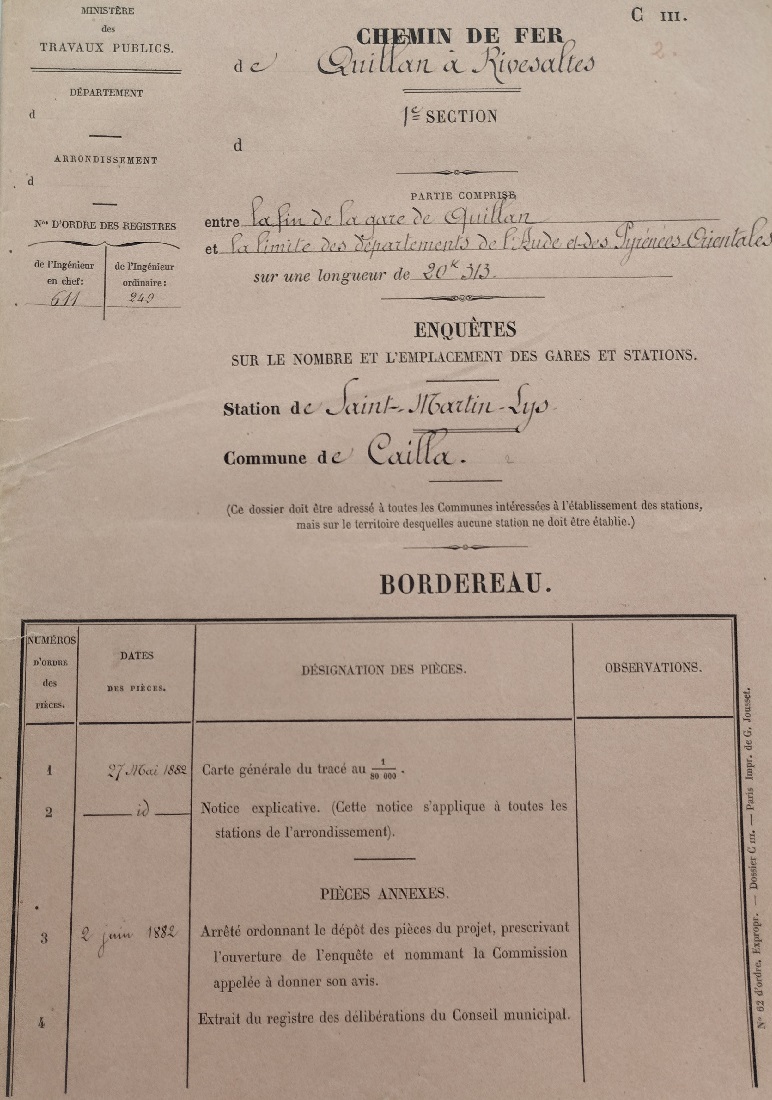 MINISTÈRE
des
TRAVAUX PUBLICS.
DÉPARTEMENT
d
ARRONDISSEMENT
d
Nos D'ORDRE DES REGISTRES
de l'Ingénieur
en chef:
611
de l'Ingénieur
ordinaire:
249
C III.
2.
CHEMIN DE FER
de Quillan à Rivesaltes
1e SECTION
d
PARTIE COMPRISE
entre la fin de la gare de Quillan
et la limite des départements de l'Aude et des Pyrénées-Orientales
sur une longueur de 20K 313
ENQUÊTES
SUR LE NOMBRE ET L'EMPLACEMENT DES GARES ET STATIONS.
Station de Saint-Martin-Lys
Commune de Cailla.
(Ce dossier doit être adressé à toutes les Communes intéressées à l'établissement des stations,
mais sur le territoire desquelles aucune station ne doit être établie.)
BORDEREAU.
NUMÉROS
D'ORDRE
des
PIÈCES.
DATES
DES PIÈCES.
DÉSIGNATION DES PIÈCES.
OBSERVATIONS.
1 27 Mai 1882 Carte générale du tracé au 1/80 000.
2 id Notice explicative. (Cette notice s'applique à toutes les
stations de l'arrondissement).
PIÈCES ANNEXES.
3 2 juin 1882 Arrêté ordonnant le dépôt des pièces du projet, prescrivant
l'ouverture de l'enquête et nommant la Commission
appelée à donner son avis.
4 Extrait du registre des délibérations du Conseil municipal.
N° 62 d'ordre. Expropr. — Dossier C III. — Paris Impr. de G. Jousset.